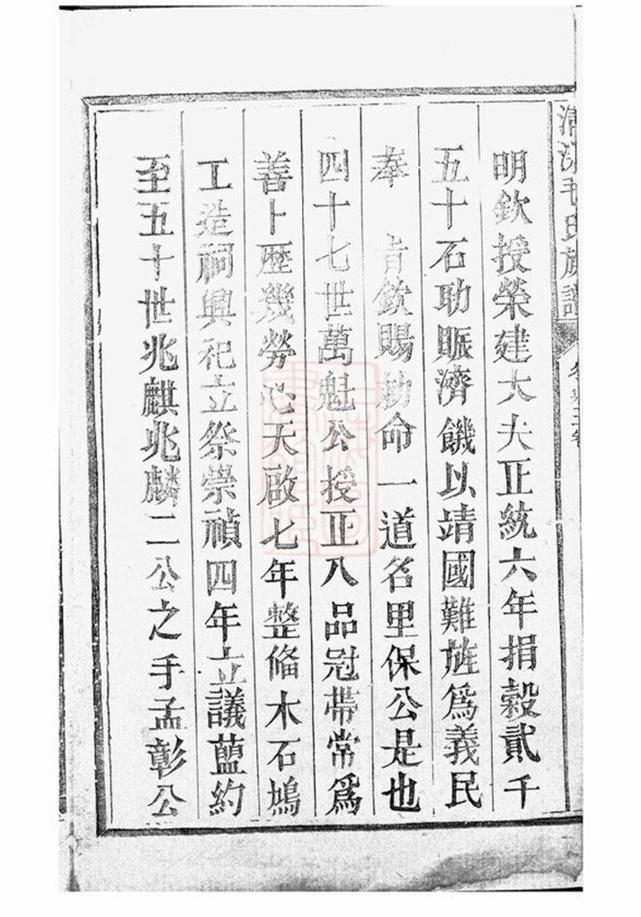 清漾毛氏族譜
明欽授榮建大夫正統六年捐穀貳千
五十石助賑濟饑以靖國難旌爲義民
奉　旨欽賜勅命一道名里保公是也
四十七世萬魁公授正八品冠帶常爲
善卜歷幾勞心天啟七年整備木石鳩
工造祠興祀立祭崇禎四年立議藍約
至五十世兆麒兆麟二公之手孟彰公